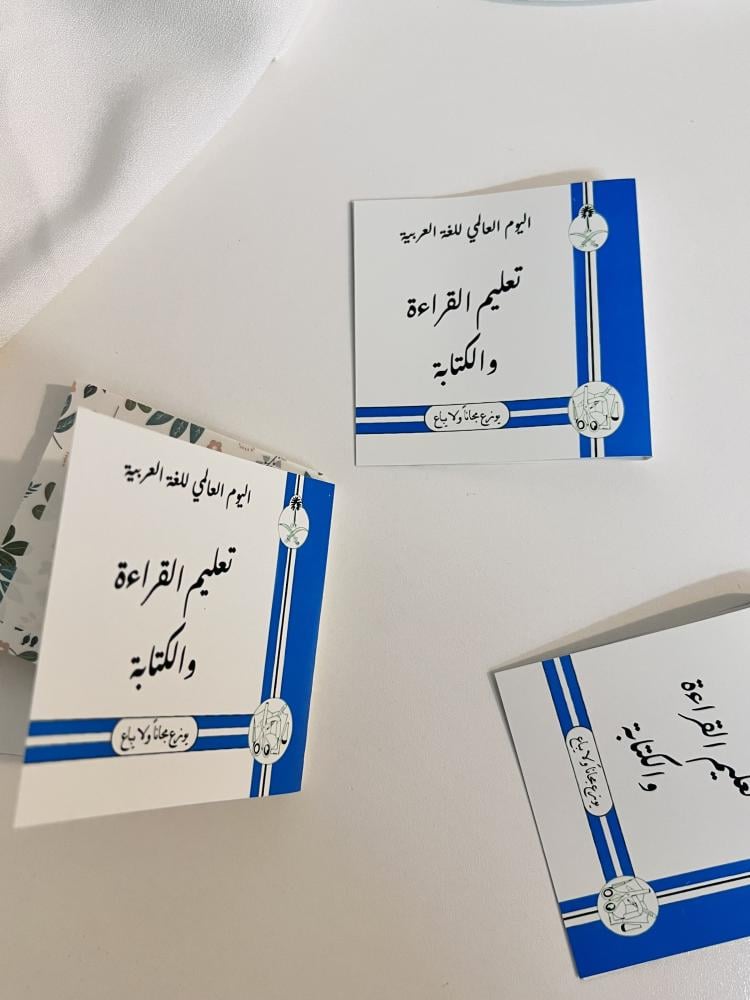 اليوم العالمي للغة العربية
تعليم القراءة
والكتابة
يوزع مجاناً ولا يباع
اليوم العالمي للغة العربية
تعليم القراءة
والكتابة
يوزع مجاناً ولا يباع
تعليم القراءة
والكتابة
يوزع مجاناً ولا يباع